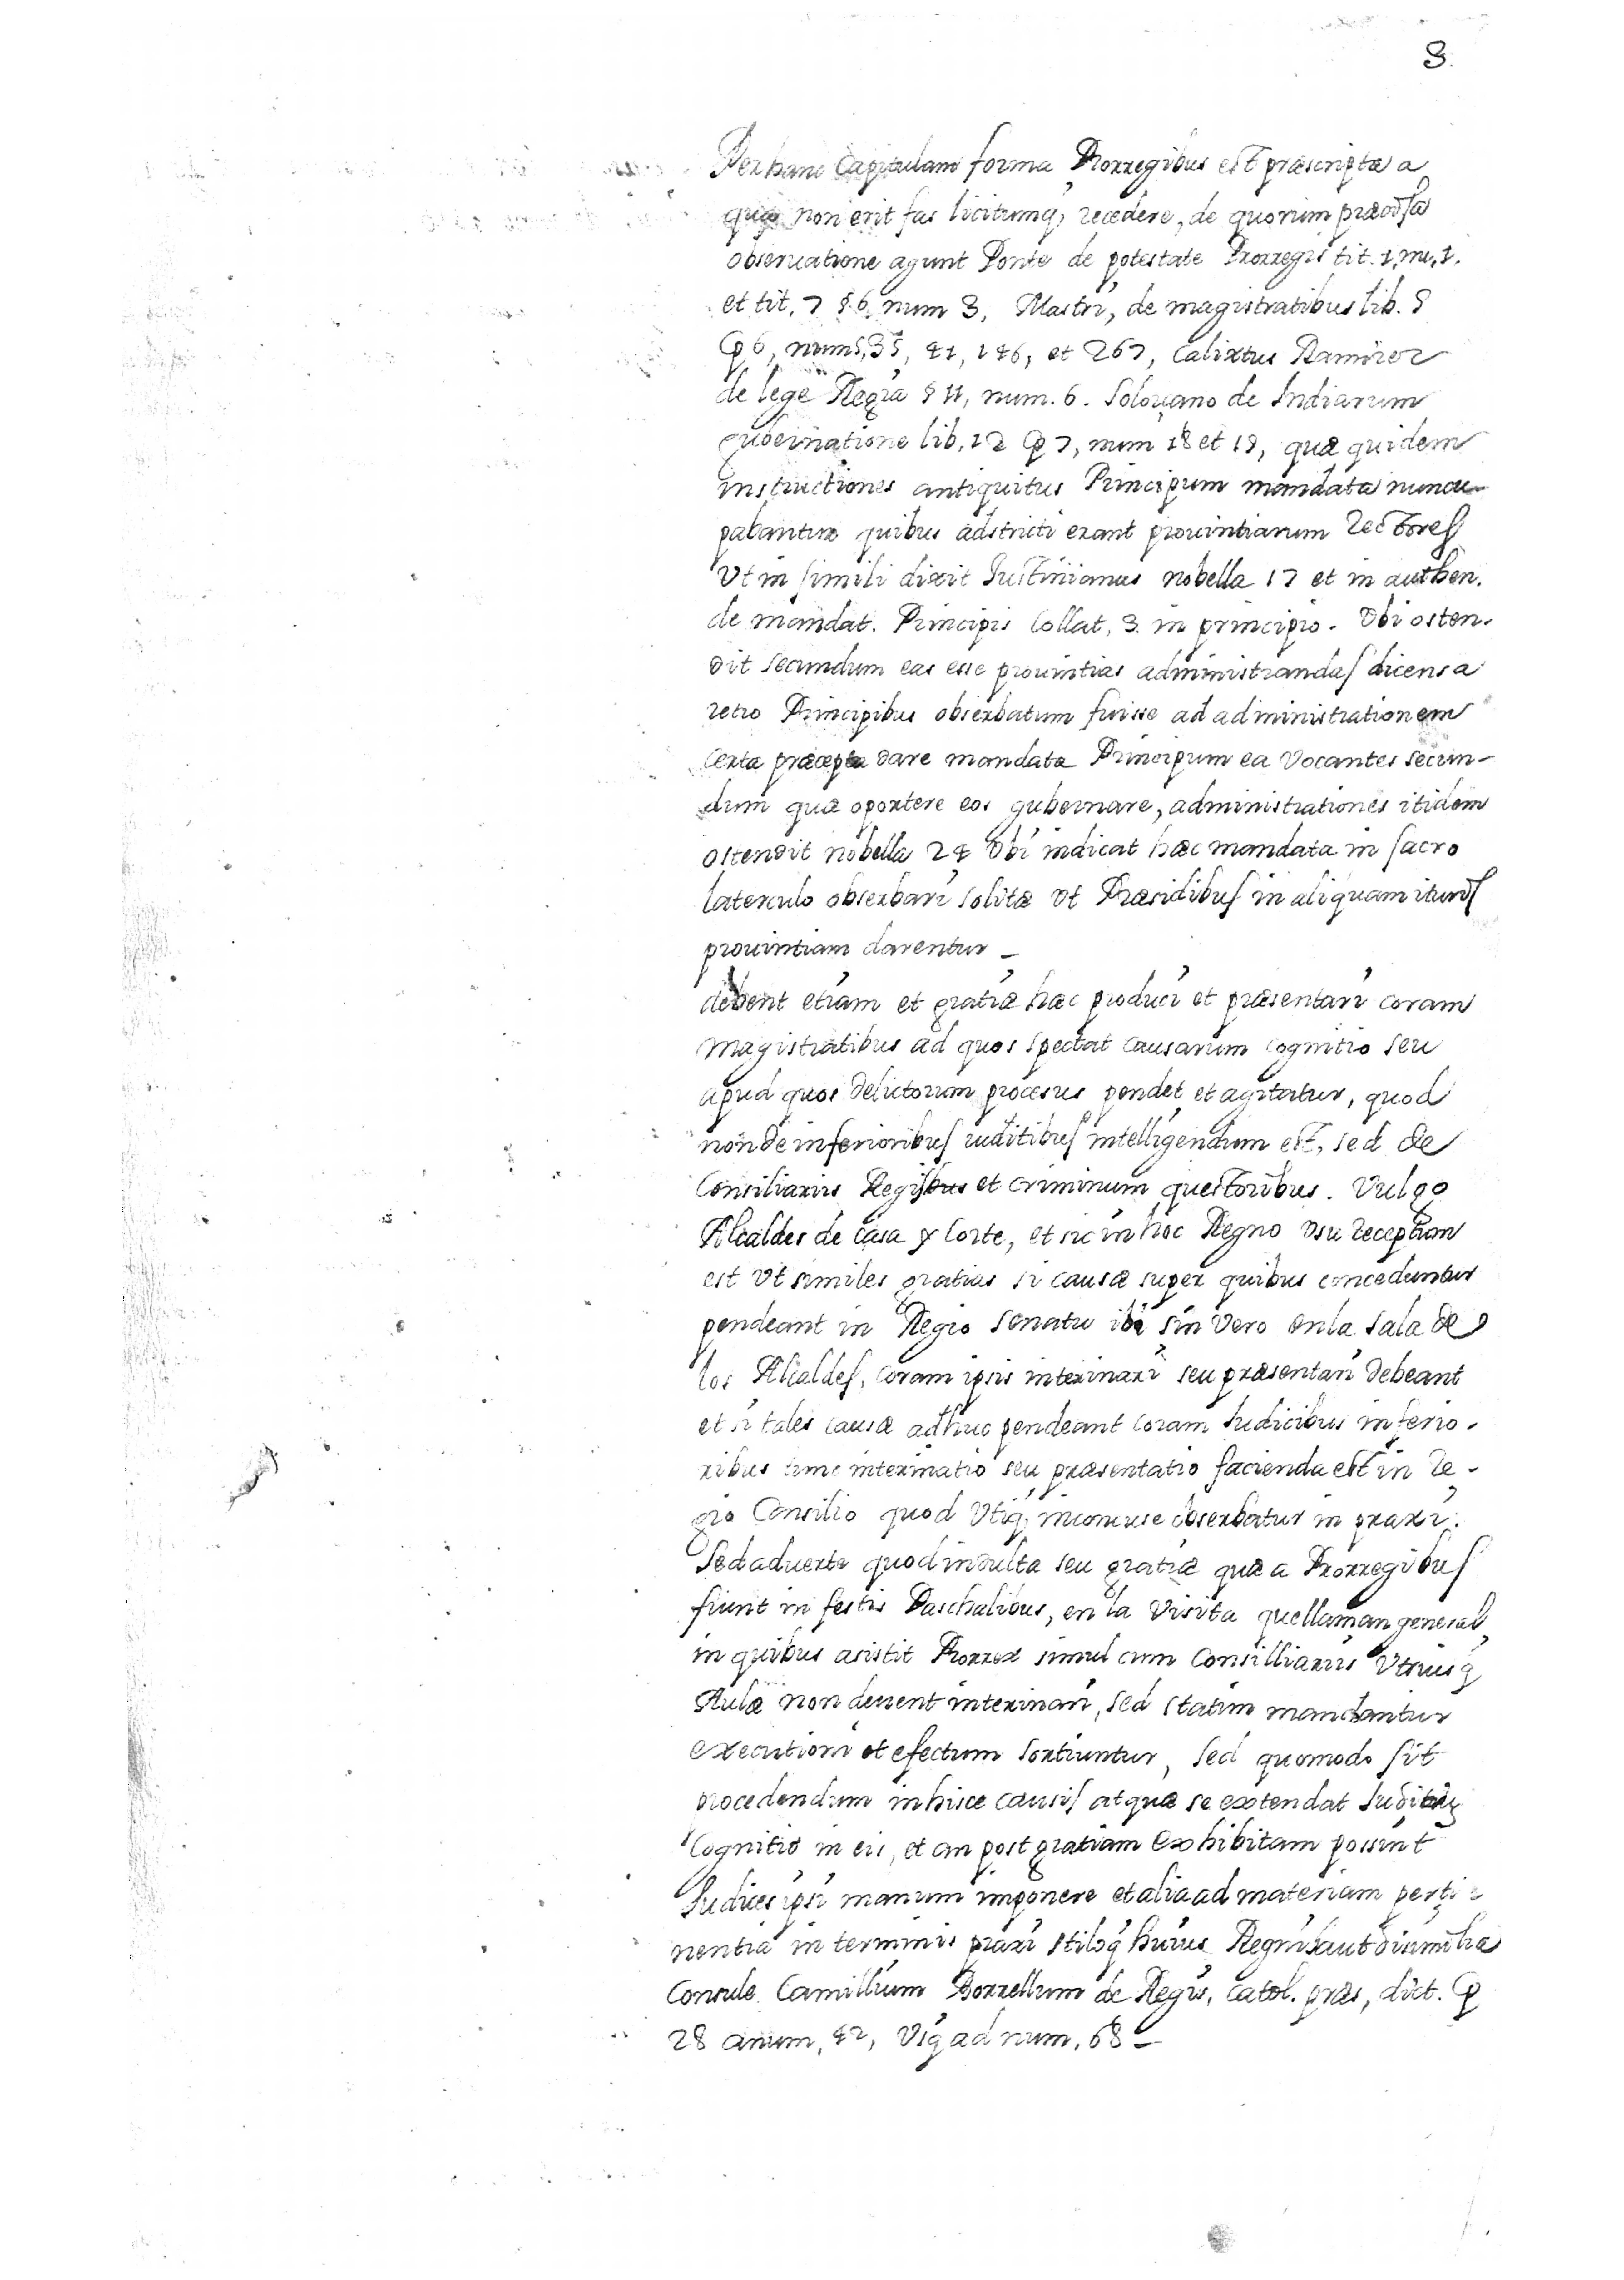 3.
Per hanc Capitulam forma Prorregibus est præscripta a
qua non erit fas licitumq, recedere, de quorum præcissa
obseruatione agunt Ponte de potestate Prorregis tit. 1, nu, 1.
et tit. 7 § 6, num 3, Mastri, de magistratibus lib. 5
Cp 6, num 5, 35, 41, 146, et 267, Calixtus Ramirez
de lege Regia § 11, num. 6. Solorzano de Indiarum
gubernatione lib, 12 Cp 7, num 18 et 19, quæ quidem
instructiones antiquitus Principum mandata nuncu-
pabantur quibus adstricti erant prouintiarum Rectores
Vt in simili dixit Justinianus nobella 17 et in authen.
de mandat. Principis Collat, 3. in principio. Vbi osten.
dit secundum eas esse prouintias administrandas dicens a
retro Principibus obserbatum fuisse ad administrationem
Certa præcepta dare mandata Principum ea Vocantes secun-
dum quæ oportere eos gubernare, administrationes itidem
ostendit nobella 24 Vbi indicat hæc mandata in sacro
laterculo obserbari solita Vt Præsidibus in aliquam ituris
prouintiam darentur -
debent etiam et gratiæ hæc produci et præsentari coram
Magistratibus ad quos spectat causarum cognitio seu
apud quos delictorum procesus pendet et agitatur, quod
non de inferioribus iuditibus intelligendum est, sed de
Consiliariis Regijs et criminum questoribus. Vulgo
Alcaldes de Casa y Corte, et sic in hoc Regno Vsu receptum
est Vt similes gratias si causæ super quibus conceduntur
pendeant in Regio senatu ibi sin Vero en la sala de
los Alcaldes, coram ipsis interinari seu præsentari debeant
et si tales causæ adhuc pendeant coram Judicibus inferio.
ribus tunc interinatio seu præsentatio facienda est in Re-
gio Consilio quod Vtiq, inconcuse obserbatur in praxi.
Sed aduerte quod indulta seu gratiæ quæ a Prorregibus
fiunt in festis Paschalibus, en la Visita que llaman general
in quibus asistit Prorrex simul cum Consilliariis Vtriusq
Aulæ non deuent interinari, sed statim mandantur
executioni et efectum sortiuntur, sed quomodo sit
procedendum in hisce causis atquæ se extendat Juditum
Cognitio in eis, et an post gratiam exhibitam possint
Judices ipsi manum imponere et alia ad materiam perti-
nentia in terminis praxi stiloq huius Regni haut disimilia
Consule Camillum Borrellum de Regis, Catol. præs, dict. Cp
28 a num, 42, Vsq ad num, 68 -